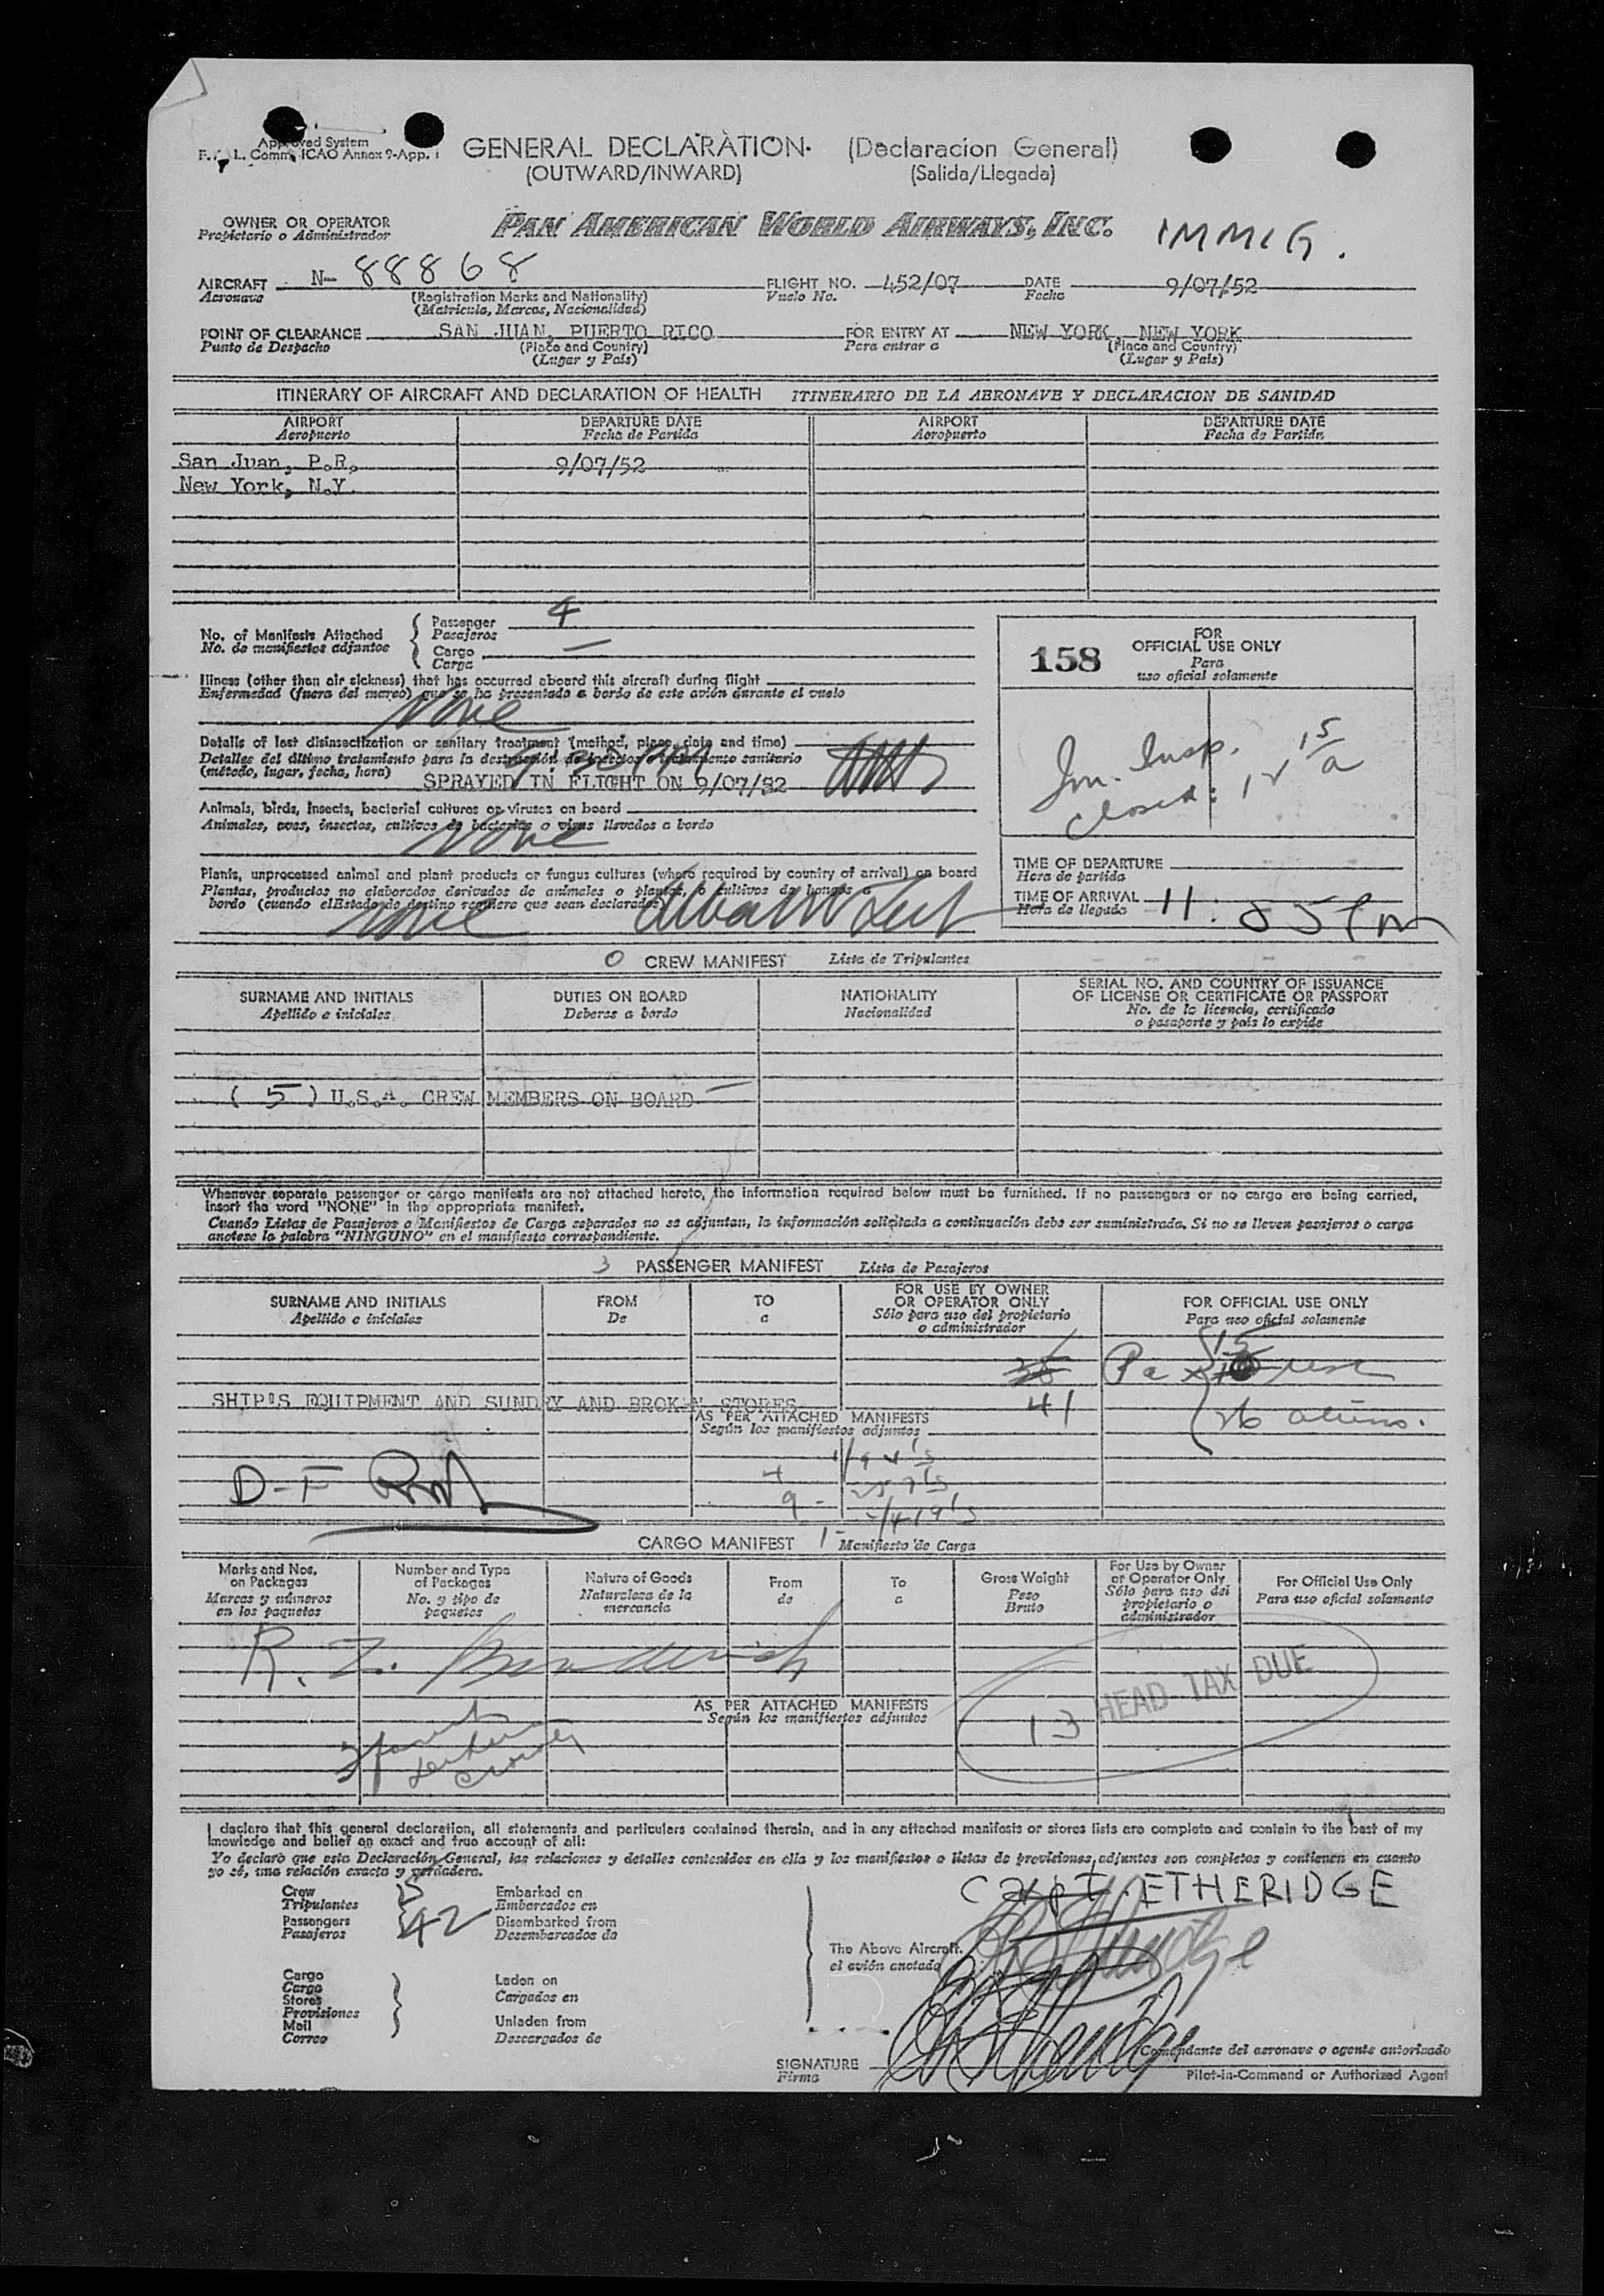 Approved System
ICAO Annex 9-App. 1
GENERAL DECLARATION (Declaracion General)
(OUTWARD/INWARD) (Salida/Llegada)
OWNER OR OPERATOR
Propietario o Administrador
PAN AMERICAN WORLD AIRWAYS, INC.
IMMIG.
AIRCRAFT N-88868 FLIGHT NO. 452/07 DATE 9/07/52
Aeronave (Registration Marks and Nationality) Vuelo No. Fecha
(Matricula, Marcas, Nacionalidad)
POINT OF CLEARANCE SAN JUAN, PUERTO RICO FOR ENTRY AT NEW YORK, NEW YORK
Punto de Despacho (Place and Country) Para entrar a (Place and Country)
(Lugar y Pais) (Lugar y Pais)
ITINERARY OF AIRCRAFT AND DECLARATION OF HEALTH ITINERARIO DE LA AERONAVE Y DECLARACION DE SANIDAD
AIRPORT DEPARTURE DATE AIRPORT DEPARTURE DATE
Aeropuerto Fecha de Partida Aeropuerto Fecha de Partida
San Juan, P.R. 9/07/52
New York, N.Y.
No. of Manifests Attached Passenger 4
No. de manifiestos adjuntos Pasajeros
Cargo —
Carga
FOR
158 OFFICIAL USE ONLY
Para
uso oficial solamente
Illness (other than air sickness) that has occurred aboard this aircraft during flight
Enfermedad (fuera del mareo) que se ha presentado a bordo de este avión durante el vuelo
None
Details of last disinsectization or sanitary treatment (method, place, date and time)
Detalles del último tratamiento para la destrucción de insectos o tratamiento sanitario
(método, lugar, fecha, hora) SPRAYED IN FLIGHT ON 9/07/52
Im. Insp.
closed: 12 15 a
Animals, birds, insects, bacterial cultures or viruses on board
Animales, aves, insectos, cultivos de bacterias o virus llevados a bordo
None
Plants, unprocessed animal and plant products or fungus cultures (where required by country of arrival) on board
Plantas, productos no elaborados derivados de animales o plantas, o cultivos de hongos a
bordo (cuando el Estado de destino requiere que sean declarados)
None
TIME OF DEPARTURE
Hora de partida
TIME OF ARRIVAL 11:55 PM
Hora de llegada
0 CREW MANIFEST Lista de Tripulantes
SURNAME AND INITIALS DUTIES ON BOARD NATIONALITY SERIAL NO. AND COUNTRY OF ISSUANCE
OF LICENSE OR CERTIFICATE OR PASSPORT
Apellido e iniciales Deberes a bordo Nacionalidad No. de la licencia, certificado
o pasaporte y pais lo expide
( 5 ) U.S.A. CREW MEMBERS ON BOARD
Whenever separate passenger or cargo manifests are not attached hereto, the information required below must be furnished. If no passengers or no cargo are being carried,
insert the word "NONE" in the appropriate manifest.
Cuando Listas de Pasajeros o Manifiestos de Carga separados no se adjuntan, la información solicitada a continuación debe ser suministrada. Si no se lleven pasajeros o carga
anotese la palabra "NINGUNO" en el manifiesto correspondiente.
3 PASSENGER MANIFEST Lista de Pasajeros
SURNAME AND INITIALS FROM TO FOR USE BY OWNER
OR OPERATOR ONLY FOR OFFICIAL USE ONLY
Apellido e iniciales De a Sólo para uso del propietario
o administrador Para uso oficial solamente
Pax 15
SHIP'S EQUIPMENT AND SUNDRY AND BROKEN STORES 41
26 aliens.
AS PER ATTACHED MANIFESTS
Según los manifiestos adjuntos
D-F
CARGO MANIFEST Manifiesto de Carga
Marks and Nos. on Packages Number and Type of Packages Nature of Goods From To Gross Weight For Use by Owner or Operator Only For Official Use Only
Marcas y números en los paquetes No. y tipo de paquetes Naturaleza de la mercancia de a Peso Bruto Sólo para uso del propietario o administrador Para uso oficial solamente
R. Z.
HEAD TAX DUE
AS PER ATTACHED MANIFESTS
Según los manifiestos adjuntos
13
3
I declare that this general declaration, all statements and particulars contained therein, and in any attached manifests or stores lists are complete and contain to the best of my
knowledge and belief an exact and true account of all:
Yo declaro que esta Declaración General, las relaciones y detalles contenidos en ella y los manifiestos o listas de provisiones adjuntos son completos y contienen en cuanto
yo sé, una relación exacta y verdadera.
Capt. ETHERIDGE
Crew 5 Embarked on
Tripulantes Embarcados en
Passengers 42 Disembarked from
Pasajeros Desembarcados de
The Above Aircraft.
el avión anotado
Cargo Laden on
Carga Cargados en
Stores
Provisiones
Mail Unladen from
Correo Descargados de
Comandante del aeronave o agente autorizado
SIGNATURE
Firma
Pilot-in-Command or Authorized Agent